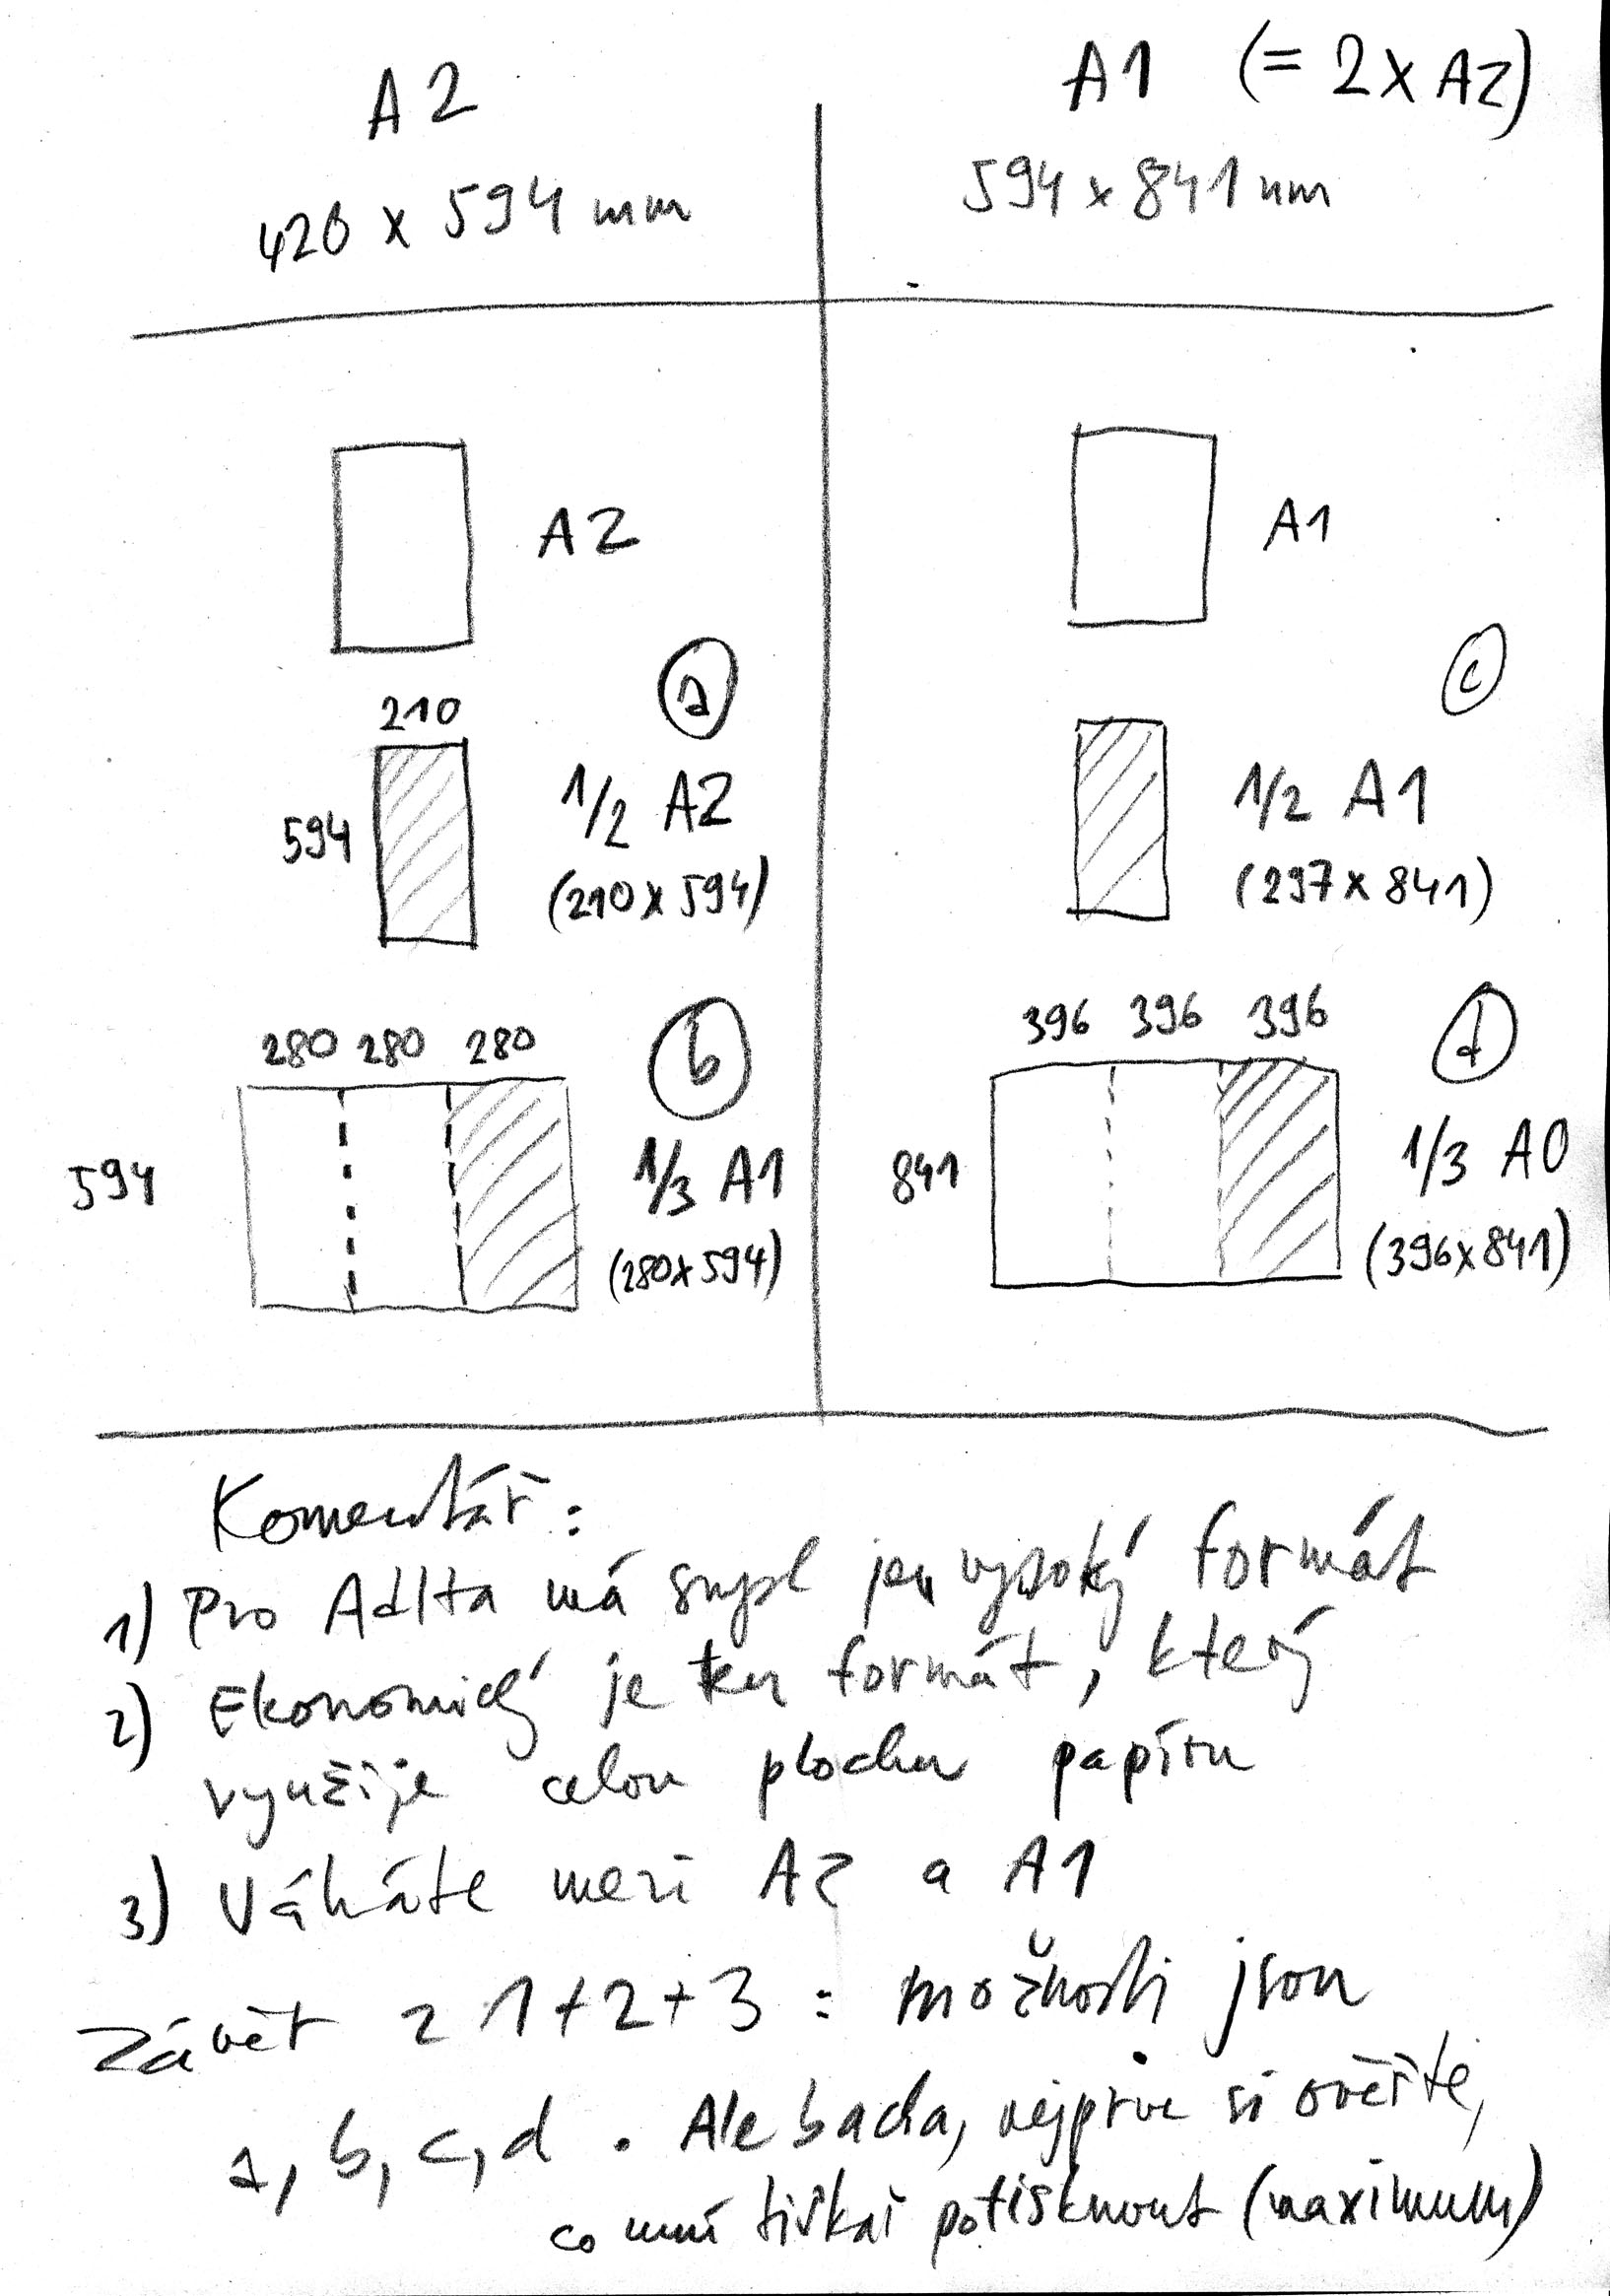 A2
A1 (= 2x A2)
420 x 594 mm
594 x 841 mm
A2
A1
a
c
210
594
1/2 A2
(210 x 594)
1/2 A1
(297 x 841)
280 280 280
b
594
1/3 A1
(280x594)
396 396 396
d
841
1/3 A0
(396x841)
Komentář:
1) Pro Adlta má smysl jen vysoký formát
2) Ekonomický je ten formát, který
využije celou plochu papíru
3) Váháte mezi A2 a A1
Závět z 1+2+3 : možnosti jsou
a, b, c, d . Ale bacha, nejprve si ověřte,
co umí tiskař potisknout (maximum)